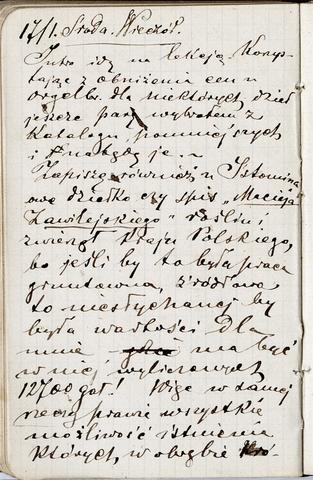 17/1. Środa. Wieczór.
Jutro idę na lekcję. Korzys-
tając z obniżenia cen u
Orgelbr. dla niektórych dzieł
jeszcze parę wybrałem z
Katalogu, pomniejszych
i nabędę je.
Zapiszę również u Istomina
owe dziełko czy spis „Macieja
Zawilejskiego" roślin i
zwierząt Kraju Polskiego,
bo jeśli by to była praca
gruntowna, źródłowa
to niesłychanej by
była wartości dla
mnie ma być
w niej wyliczonych
12700 gat! Więc w samej
rzeczy prawie wszystkie
możliwość istnienia
których, w obrębie Kró-